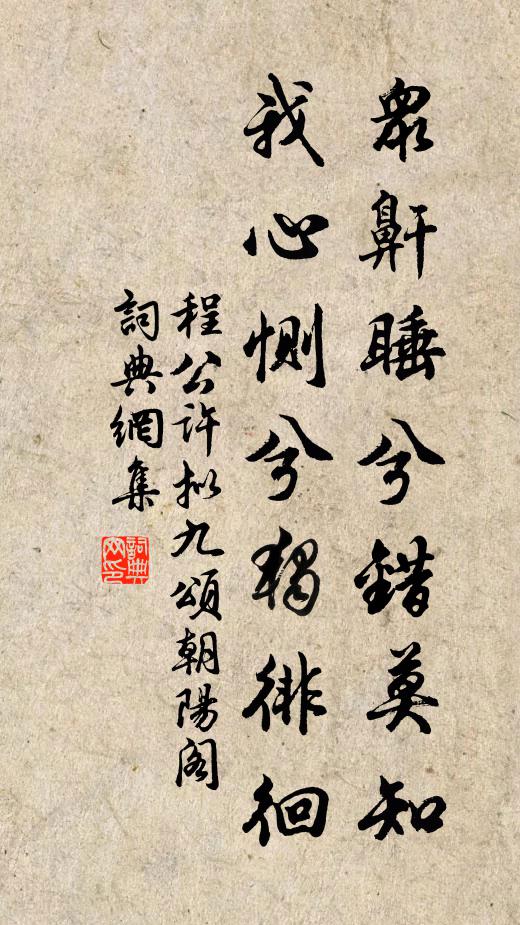 眾鼾睡兮錯莫知
我心惻兮獨徘徊
程公許拟九頌朝陽阁
詞典網集
詞典网印